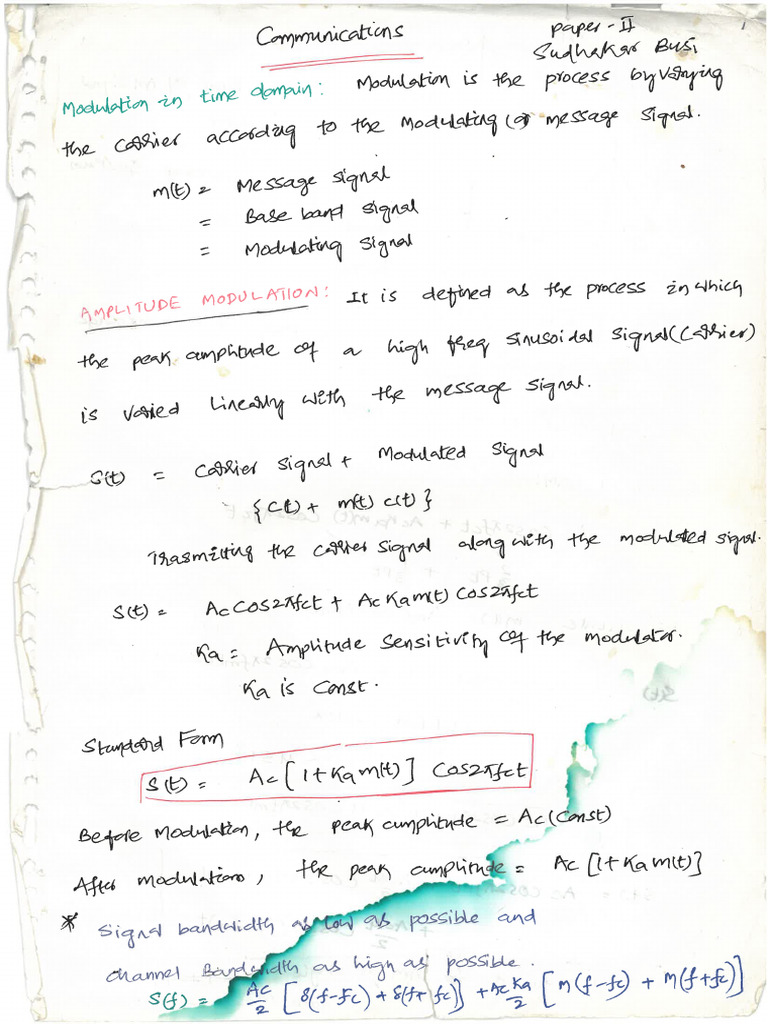 Communications
paper - II
Sudhakar Busi
1
Modulation in time domain: Modulation is the process by varying
the carrier according to the modulating (or) message signal.
m(t) = Message signal
= Base band signal
= Modulating signal
AMPLITUDE MODULATION: It is defined as the process in which
the peak amplitude of a high freq sinusoidal signal (carrier)
is varied linearly with the message signal.
S(t) = carrier signal + Modulated signal
{ c(t) + m(t) c(t) }
Trasmitting the carrier signal along with the modulated signal.
S(t) = Ac cos2πfct + Ac Ka m(t) cos2πfct
Ka = Amplitude sensitivity of the modulator.
Ka is const.
Standard Form
S(t) = Ac [1 + Ka m(t)] cos2πfct
Before modulation, the peak amplitude = Ac (const)
After modulation, the peak amplitude = Ac [1 + Ka m(t)]
* Signal bandwidth as low as possible and
channel Bandwidth as high as possible.
S(f) = Ac/2 [δ(f-fc) + δ(f+fc)] + Ac Ka/2 [M(f-fc) + M(f+fc)]